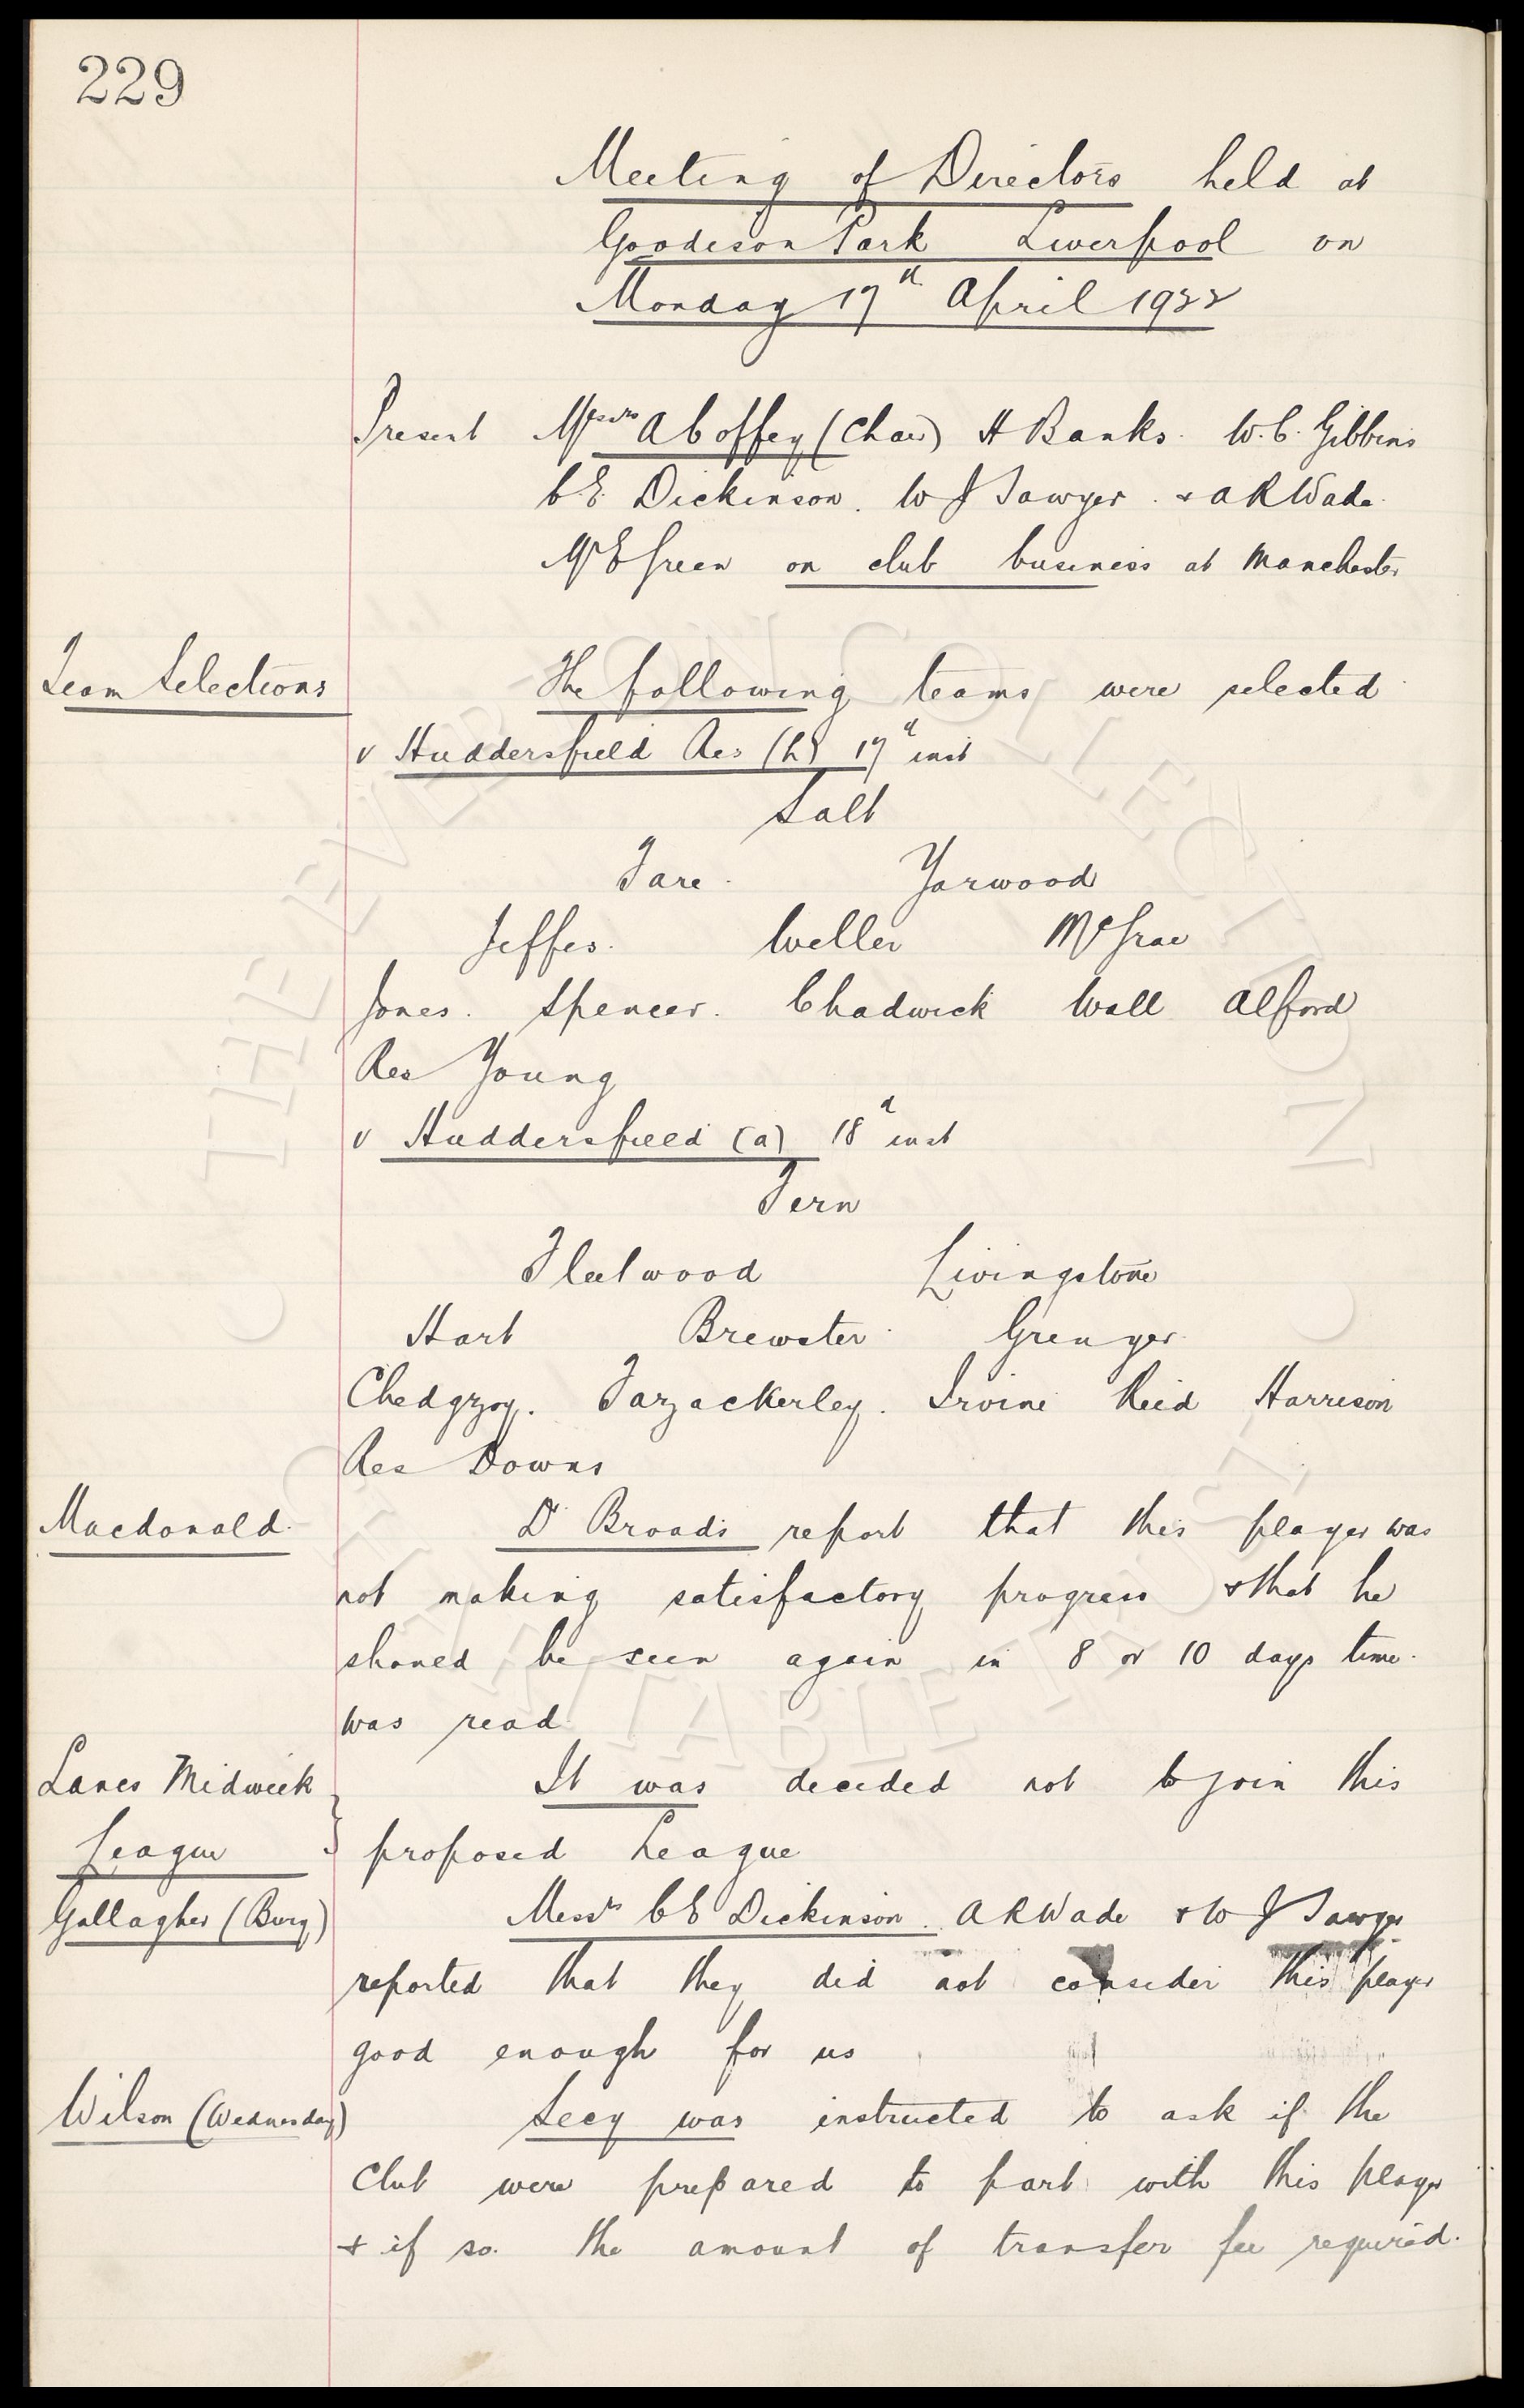 229
Meeting of Directors held at
Goodison Park Liverpool on
Monday 17th April 1922
Present Messrs A Coffey (Chair) H Banks. W.C. Gibbins
C.E. Dickinson. W J Sawyer. & A R Wade.
Mr E Green on club business at Manchester
Team Selections The following teams were selected
v Huddersfield Res (h) 17th inst
Salt
Fare. Yarwood
Jeffes. Weller McGrae
Jones. Spencer. Chadwick Wall Alford
Res Young
v Huddersfield (a) 18th inst
Fern
Fleetwood Livingstone
Hart Brewster. Grenyer.
Chedgzoy. Fazackerley. Irvine Reid Harrison
Res Downs
Macdonald. Dr Broads report that this player was
not making satisfactory progress & that he
should be seen again in 8 or 10 days time.
was read.
Lancs Midweek It was decided not to join this
League proposed League
Gallagher (Bury) Messrs C E Dickinson. A R Wade & W J Sawyer
reported that they did not consider this player
good enough for us
Wilson (Wednesday) Secy was instructed to ask if the
Club were prepared to part with this player
& if so. the amount of transfer fee required.
THE EVERTON COLLECTION
CHARITABLE TRUST